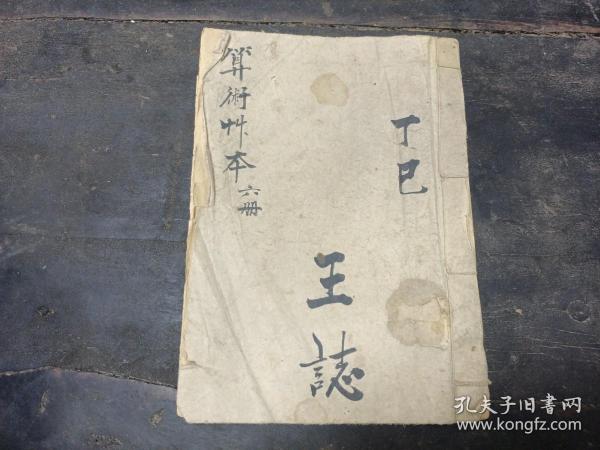 丁巳
王誌
算術艸本 六册
孔夫子旧书网
www.kongfz.com